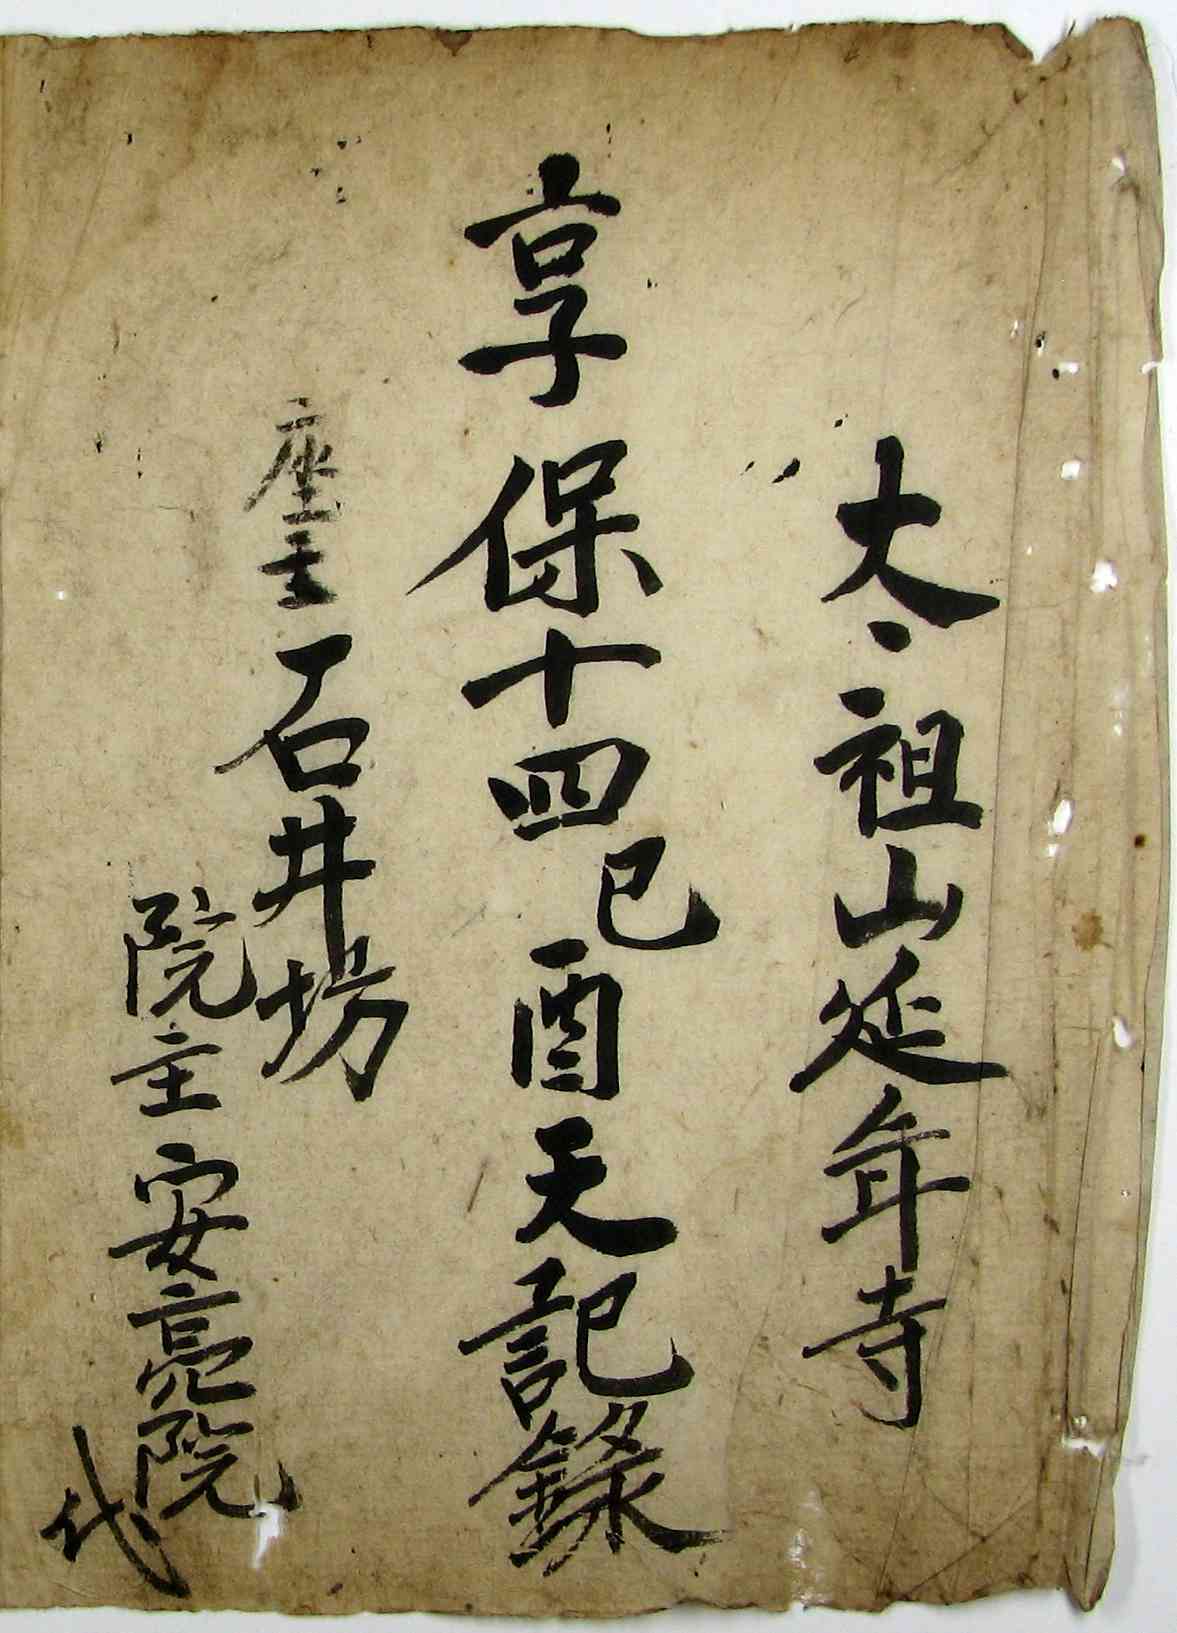 太祖山延年寺
享保十四己酉天記録
座主石井坊
院主安亮院
代